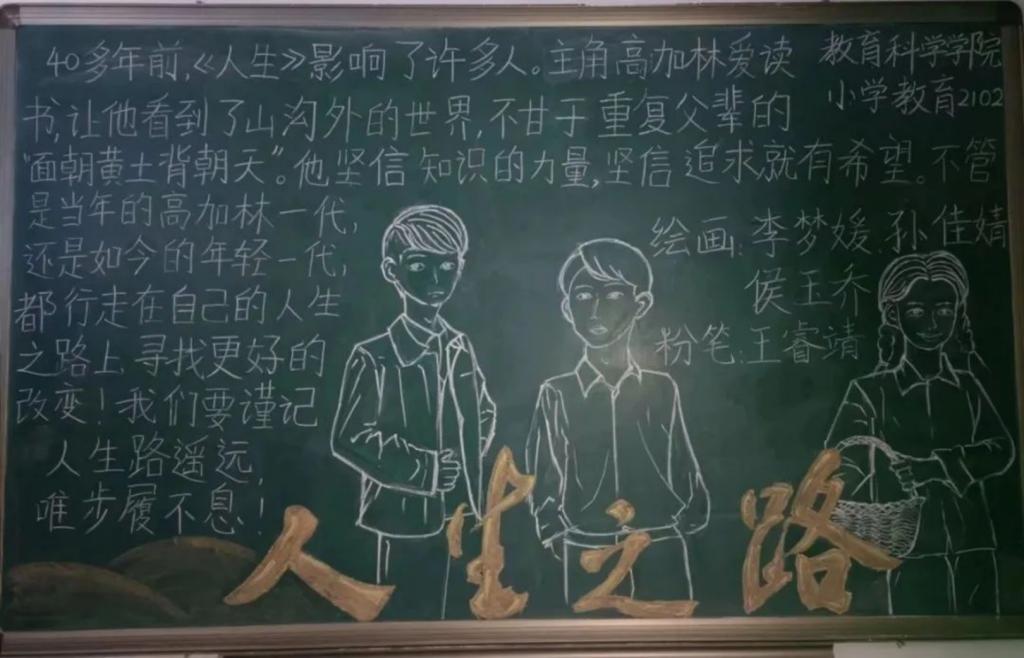 40多年前,《人生》影响了许多人。主角高加林爱读
书,让他看到了山沟外的世界,不甘于重复父辈的
“面朝黄土背朝天”。他坚信知识的力量,坚信追求就有希望。不管
是当年的高加林一代,
还是如今的年轻一代,
都行走在自己的人生
之路上,寻找更好的
改变!我们要谨记
人生路遥远,
唯步履不息!
教育科学学院
小学教育2102
绘画:李梦媛.孙佳婧
侯王乔
粉笔:王睿靖
人生之路